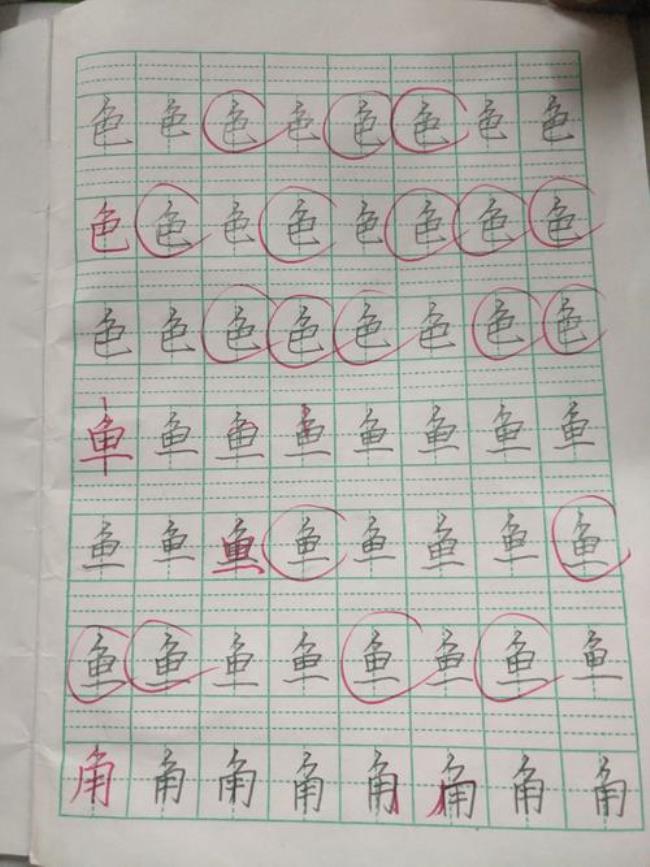 色色色色色色色色
色色色色色色色色
色色色色色色色色
鱼鱼鱼鱼鱼鱼鱼鱼
鱼鱼鱼鱼鱼鱼鱼鱼
鱼鱼鱼鱼鱼鱼鱼鱼
角角角角角角角角